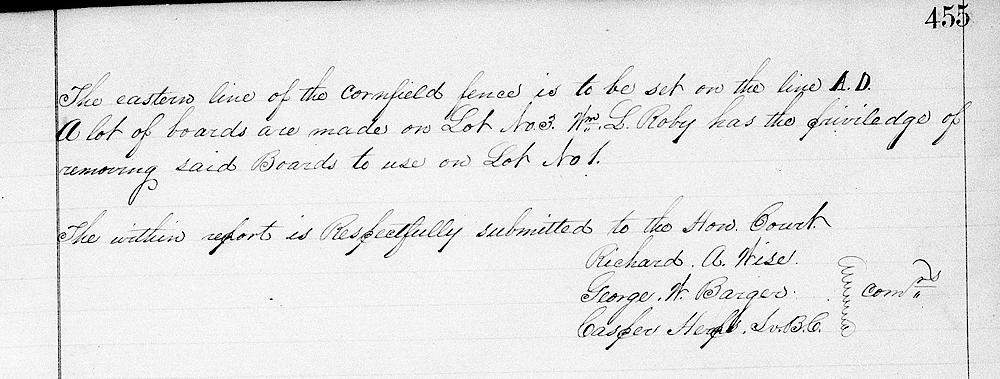 455
The eastern line of the cornfield fence is to be set on the line A.D.
A lot of boards are made on Lot No. 3. Wm. L. Roby has the priviledge of
removing said Boards to use on Lot No 1.
The within report is Respectfully submitted to the Hon. Court.
Richard. A. Wise.
George. W. Barger. comrs
Casper S. B. C.